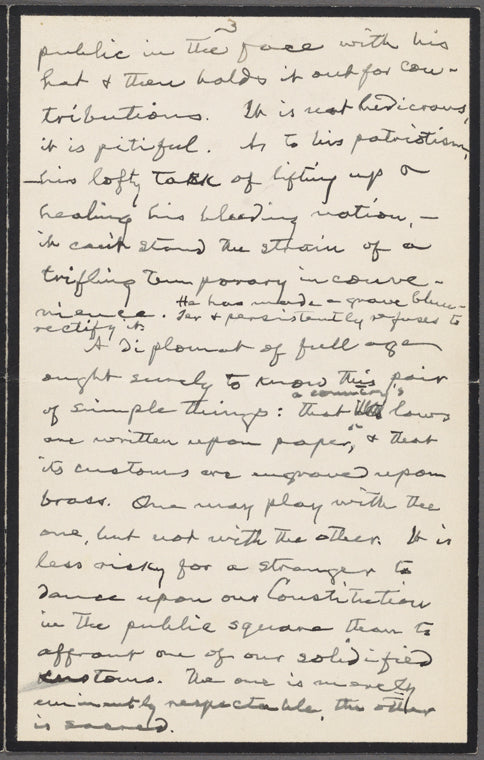 3
public in the face with his
hat & then holds it out for con-
tributions. It is not ludicrous,
it is pitiful. As to his patriotism,
—his lofty task of lifting up &
healing his bleeding nation, —
it can't stand the strain of a
trifling temporary inconve-
nience. He has made a grave blun-
der & persistently refuses to
rectify it.
A diplomat of full age
ought surely to know this pair
of simple things: that a country's laws
are written upon paper, & that
its customs are engraved upon
brass. One may play with the
one, but not with the other. It is
less risky for a stranger to
dance upon our Constitution
in the public square than to
affront one of our solidified
customs. The one is merely
eminently respectable, the other
is sacred.